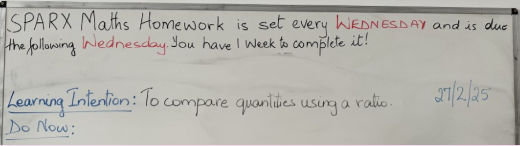 SPARX Maths Homework is set every WEDNESDAY and is due
the following Wednesday. You have 1 week to complete it!
Learning Intention: To compare quantities using a ratio. 27/2/25
Do Now: